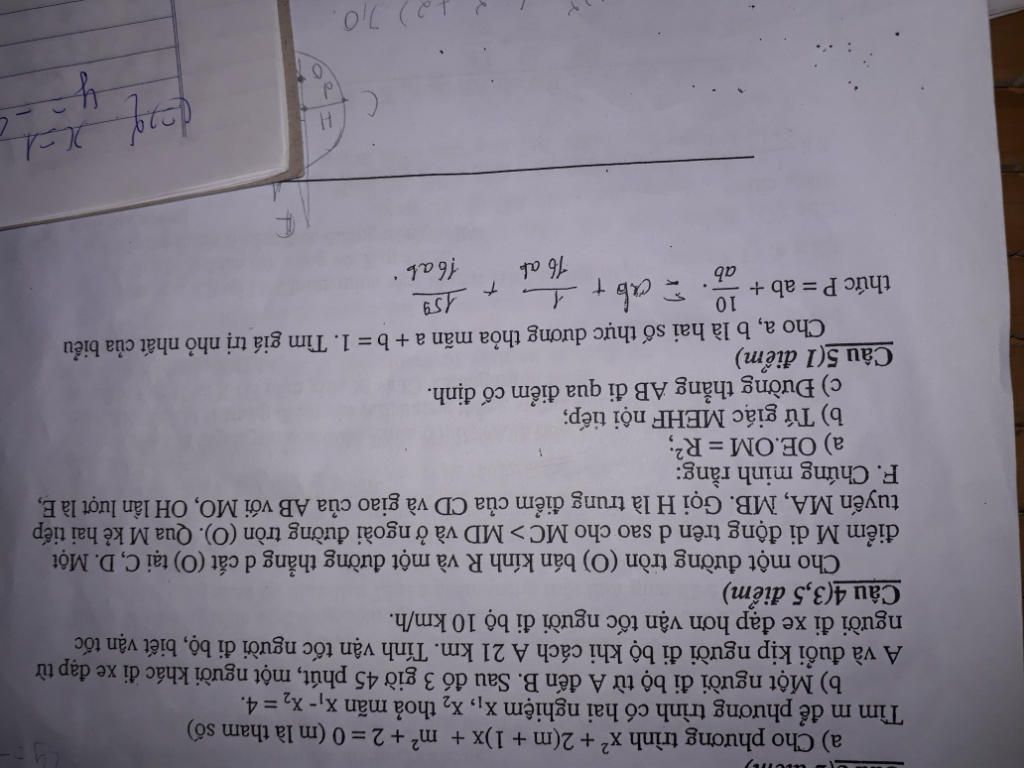 a) Cho phương trình x² + 2(m + 1)x + m² + 2 = 0 (m là tham số)
Tìm m để phương trình có hai nghiệm x₁, x₂ thoả mãn x₁- x₂ = 4.
b) Một người đi bộ từ A đến B. Sau đó 3 giờ 45 phút, một người khác đi xe đạp từ
A và đuổi kịp người đi bộ khi cách A 21 km. Tính vận tốc người đi bộ, biết vận tốc
người đi xe đạp hơn vận tốc người đi bộ 10 km/h.
Câu 4(3,5 điểm)
Cho một đường tròn (O) bán kính R và một đường thẳng d cắt (O) tại C, D. Một
điểm M di động trên d sao cho MC > MD và ở ngoài đường tròn (O). Qua M kẻ hai tiếp
tuyến MA, MB. Gọi H là trung điểm của CD và giao của AB với MO, OH lần lượt là E,
F. Chứng minh rằng:
a) OE.OM = R²;
b) Tứ giác MEHF nội tiếp;
c) Đường thẳng AB đi qua điểm cố định.
Câu 5(1 điểm)
Cho a, b là hai số thực dương thỏa mãn a + b = 1. Tìm giá trị nhỏ nhất của biểu
thức P = ab + 10/ab. = ab + 1/16ab + 159/16ab.
C H O
x=1
y=